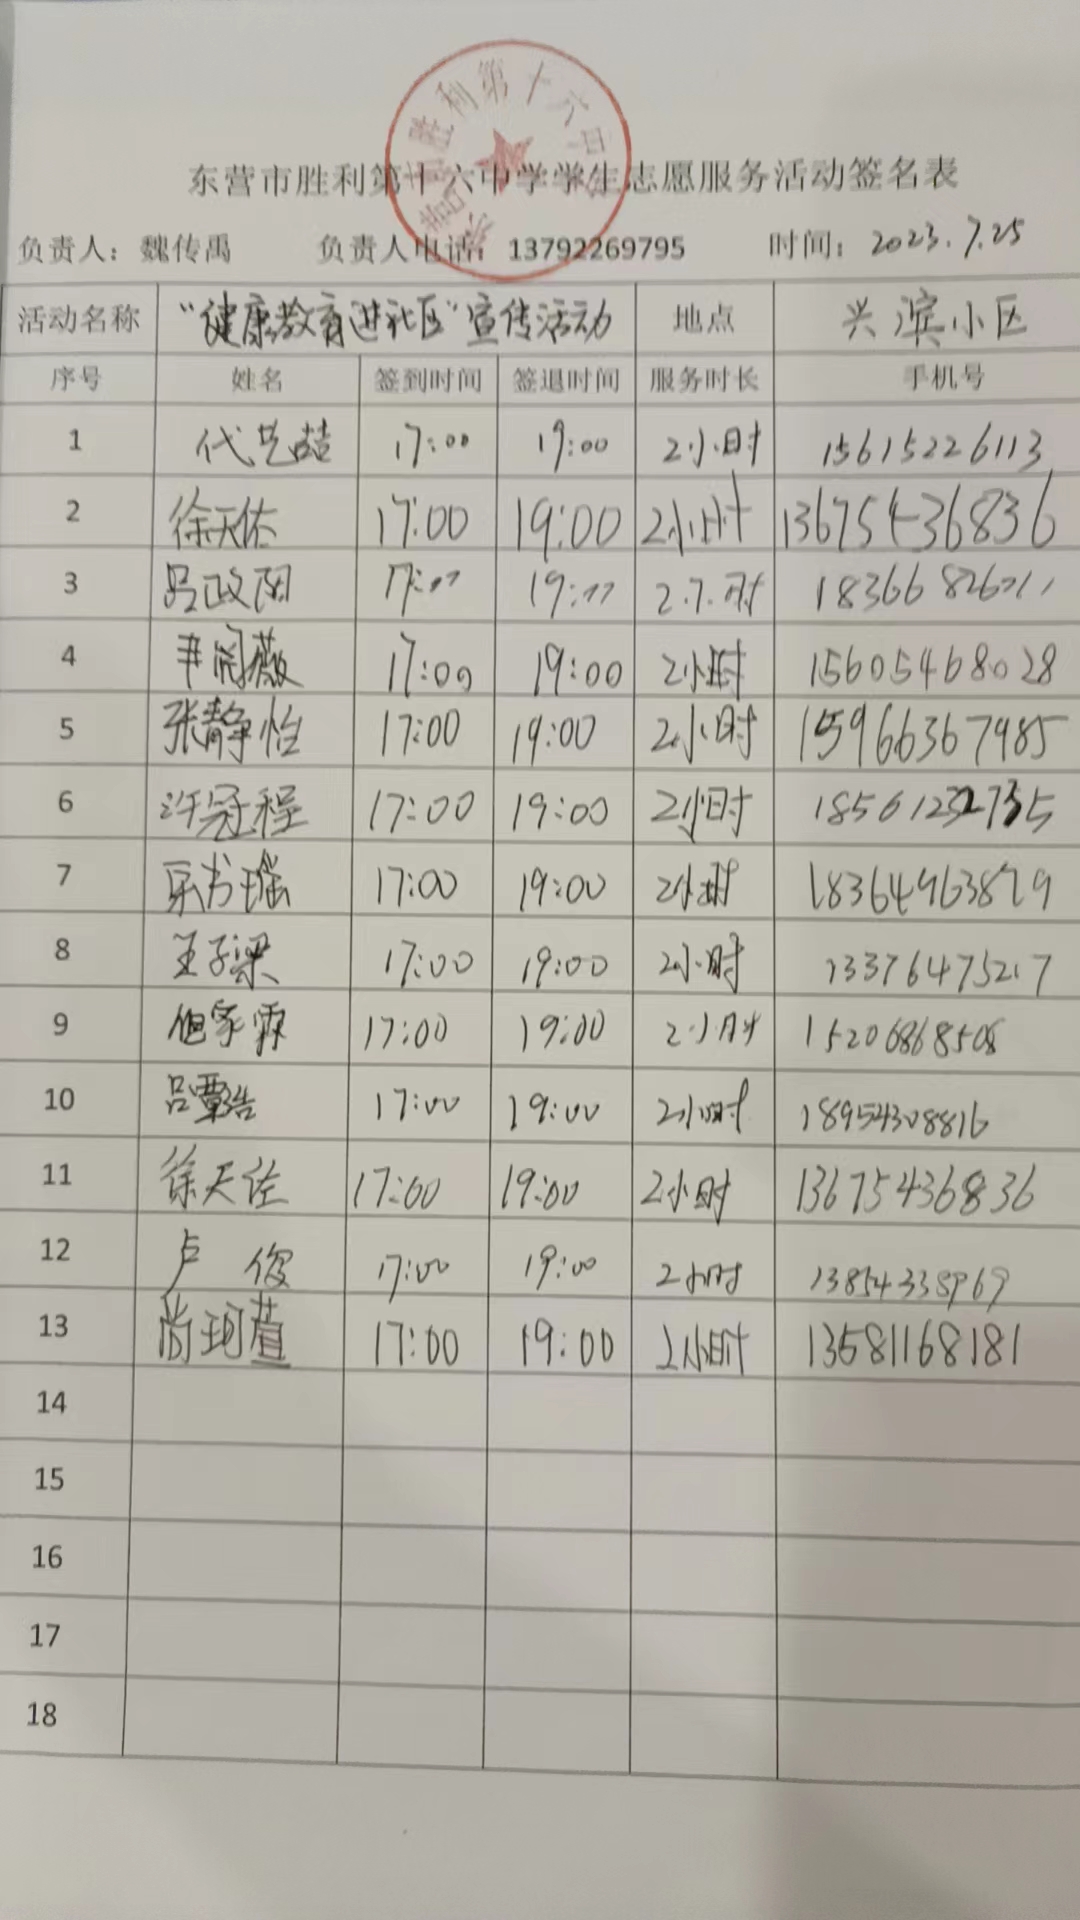 东营市胜利第十六中学学生志愿服务活动签名表
负责人：魏传禹 负责人电话：13792269795 时间：2023.7.25
活动名称 “健康教育进社区”宣传活动 地点 兴滨小区
序号 姓名 签到时间 签退时间 服务时长 手机号
1 代艺喆 17:00 19:00 2小时 15615226113
2 徐天佑 17:00 19:00 2小时 13675436836
3 吕政阳 19: 2小时
4 尹阅薇 17:00 19:00 2小时 15605468028
5 张静怡 17:00 19:00 2小时 15966367985
6 许冠程 17:00 19:00 2小时
7 书瑶 17:00 19:00 2小时 18364963879
8 王子梁 17:00 19:00 2小时 13376475217
9 家霖 17:00 19:00 2小时 15206868508
10 吕覃浩 17:00 19:00 2小时 18954308816
11 徐天佐 17:00 19:00 2小时 13675436836
12 卢俊 17:00 19:00 2小时 13854338969
13 尚珂萱 17:00 19:00 2小时 13581168181
14
15
16
17
18